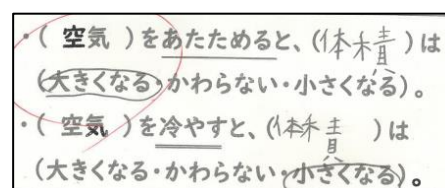 ・( 空気 )をあたためると、(体積)は
(大きくなる・かわらない・小さくなる)。
・( 空気 )を冷やすと、(体積 )は
(大きくなる・かわらない・小さくなる)。